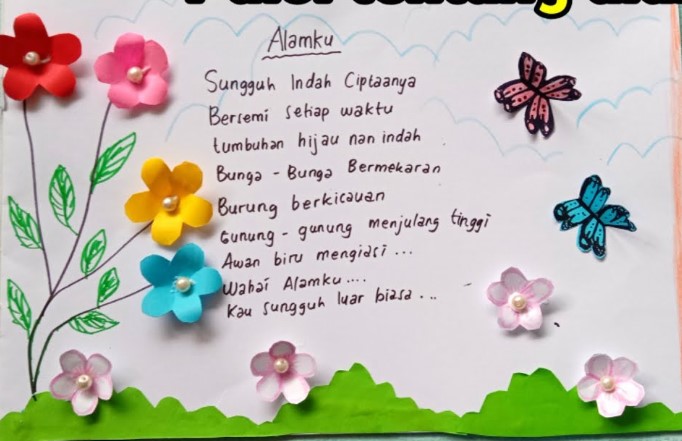 Alamku
Sungguh Indah Ciptaanya
Bersemi setiap waktu
tumbuhan hijau nan indah
Bunga - Bunga Bermekaran
Burung berkicauan
Gunung - gunung menjulang tinggi
Awan biru mengiasi ...
Wahai Alamku ....
Kau sungguh luar biasa ...